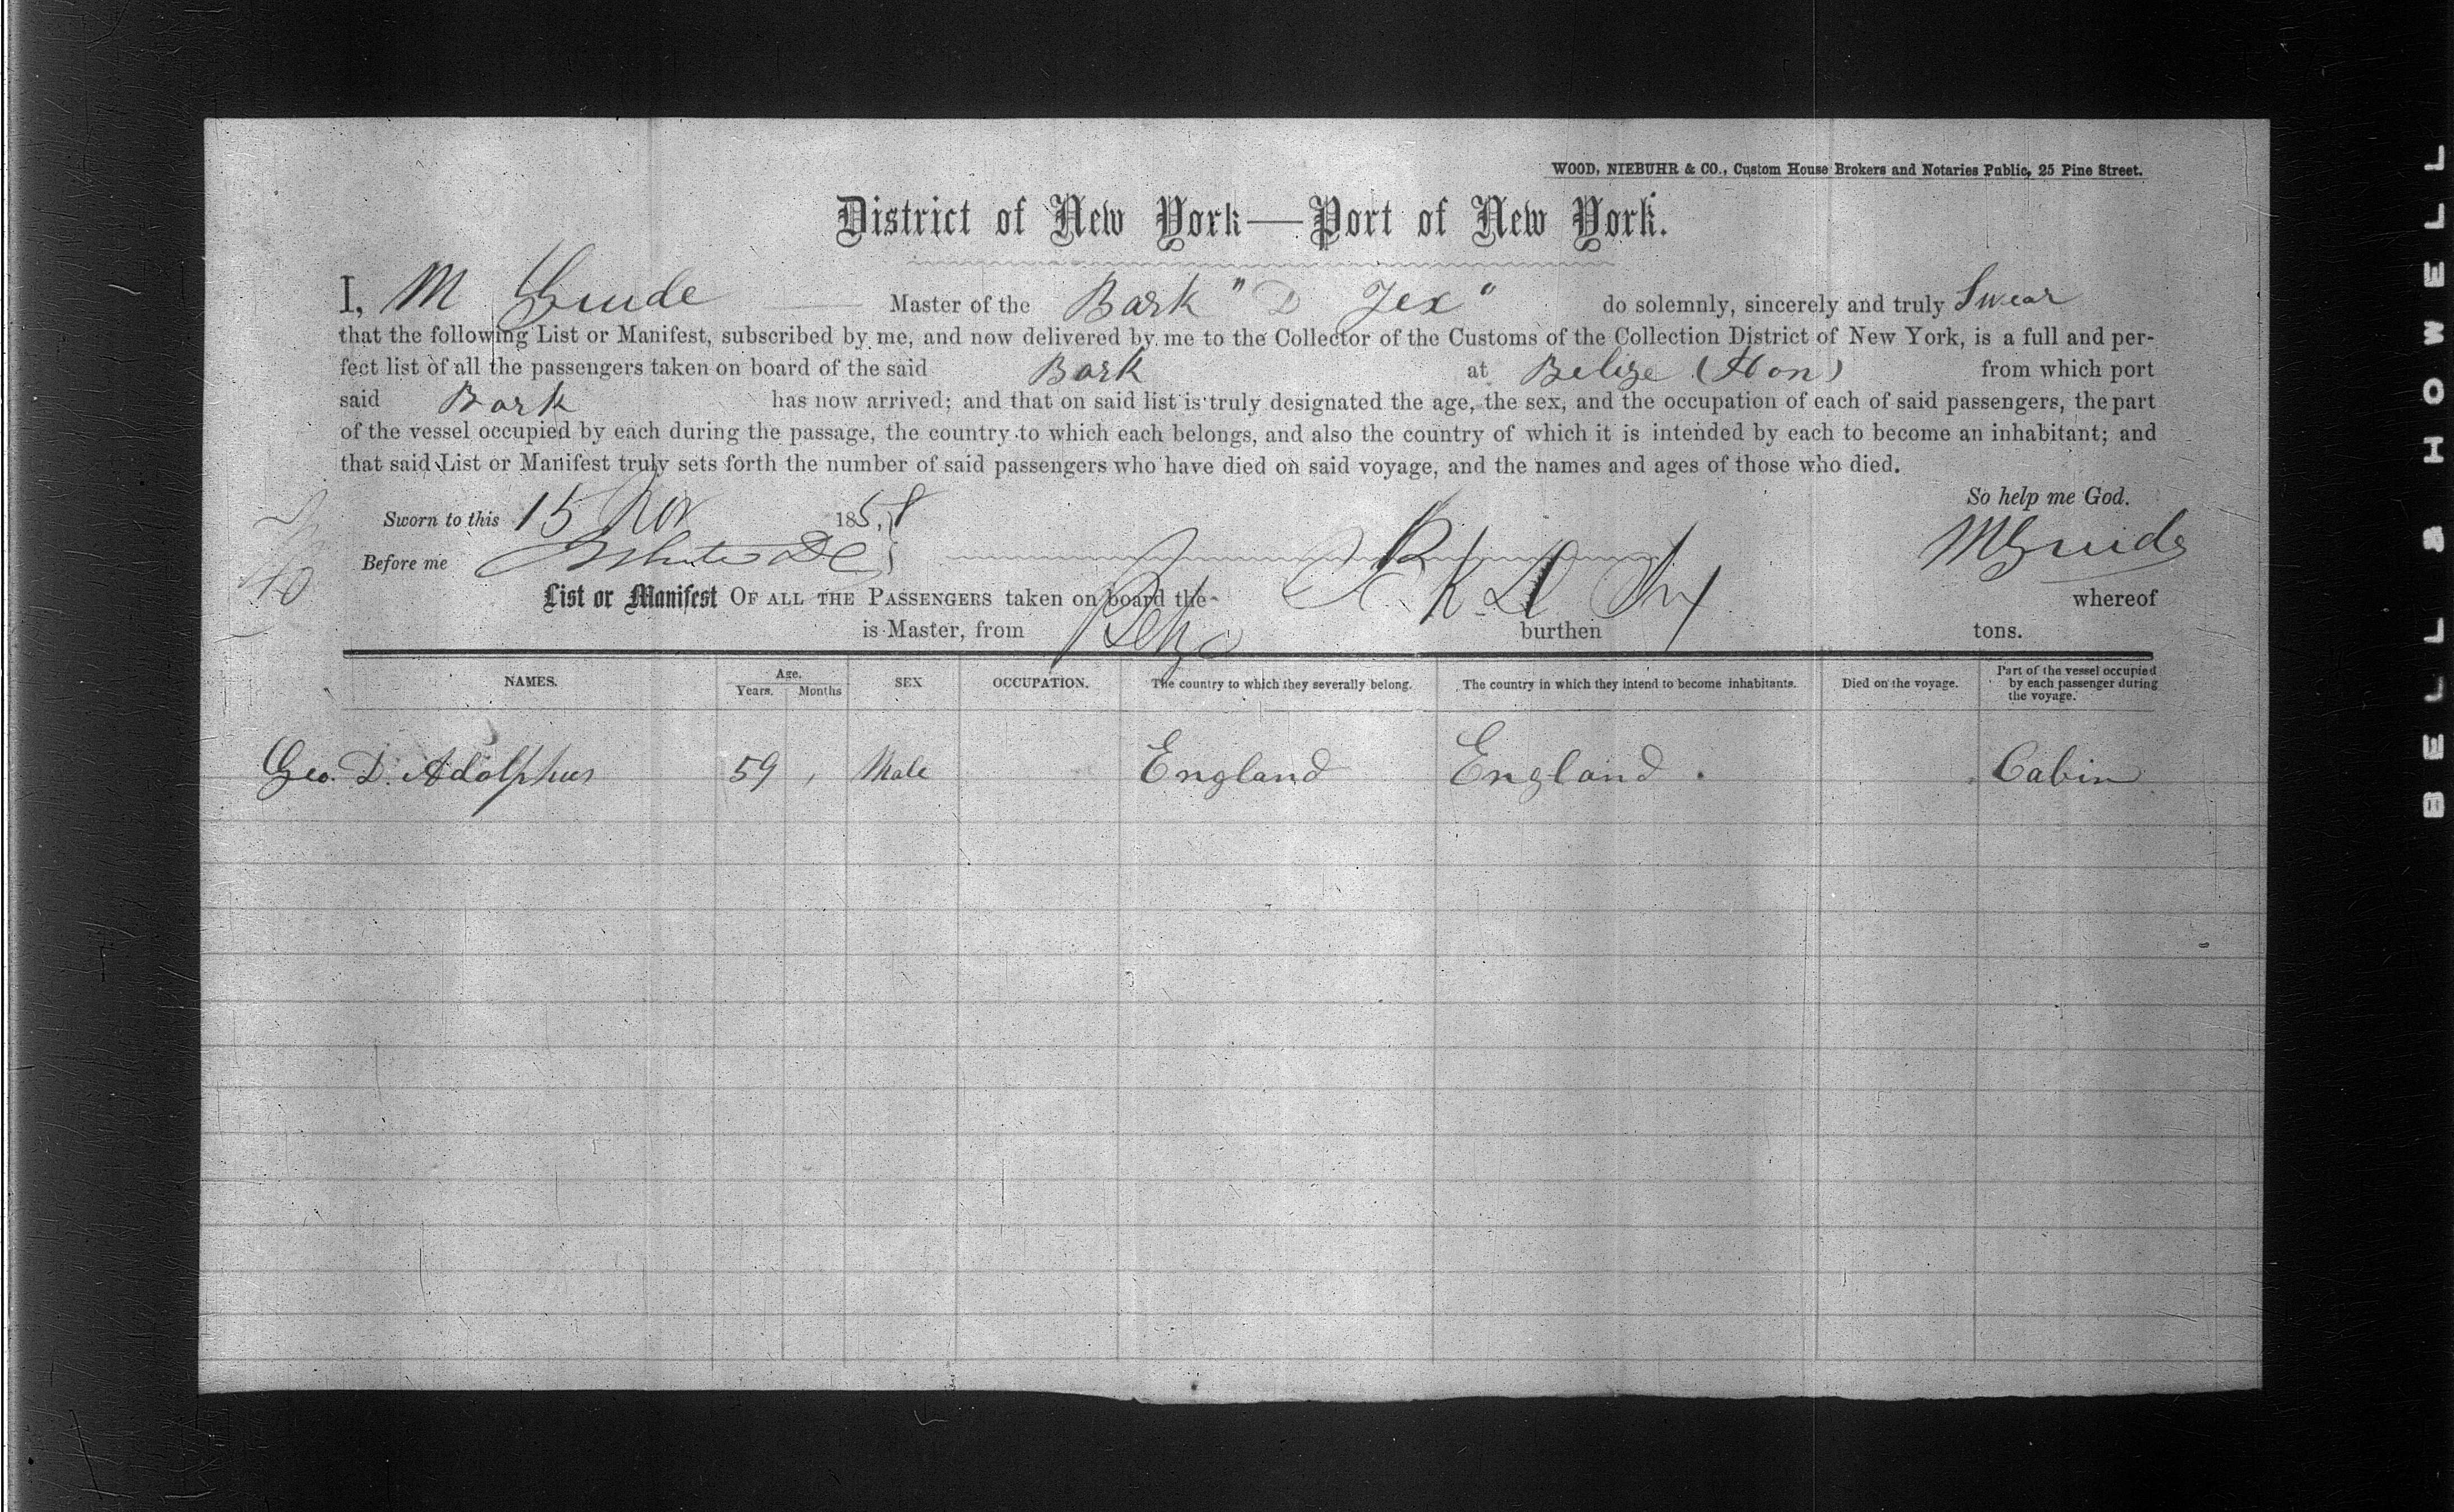 WOOD, NIEBUHR & CO., Custom House Brokers and Notaries Public, 25 Pine Street.
District of New York—Port of New York.
I, M Master of the Bark " D Jex " do solemnly, sincerely and truly Swear
that the following List or Manifest, subscribed by me, and now delivered by me to the Collector of the Customs of the Collection District of New York, is a full and per-
fect list of all the passengers taken on board of the said Bark at Belize (Hon) from which port
said Bark has now arrived; and that on said list is truly designated the age, the sex, and the occupation of each of said passengers, the part
of the vessel occupied by each during the passage, the country to which each belongs, and also the country of which it is intended by each to become an inhabitant; and
that said List or Manifest truly sets forth the number of said passengers who have died on said voyage, and the names and ages of those who died.
So help me God.
Sworn to this 15 Nov 1858
Before me
List or Manifest OF ALL THE PASSENGERS taken on board the whereof
is Master, from Belize burthen tons.
NAMES. Age. Years. Months SEX OCCUPATION. The country to which they severally belong. The country in which they intend to become inhabitants. Died on the voyage. Part of the vessel occupied by each passenger during the voyage.
Geo. D. Adolphus 59 Male England England . Cabin
BELL & HOWELL